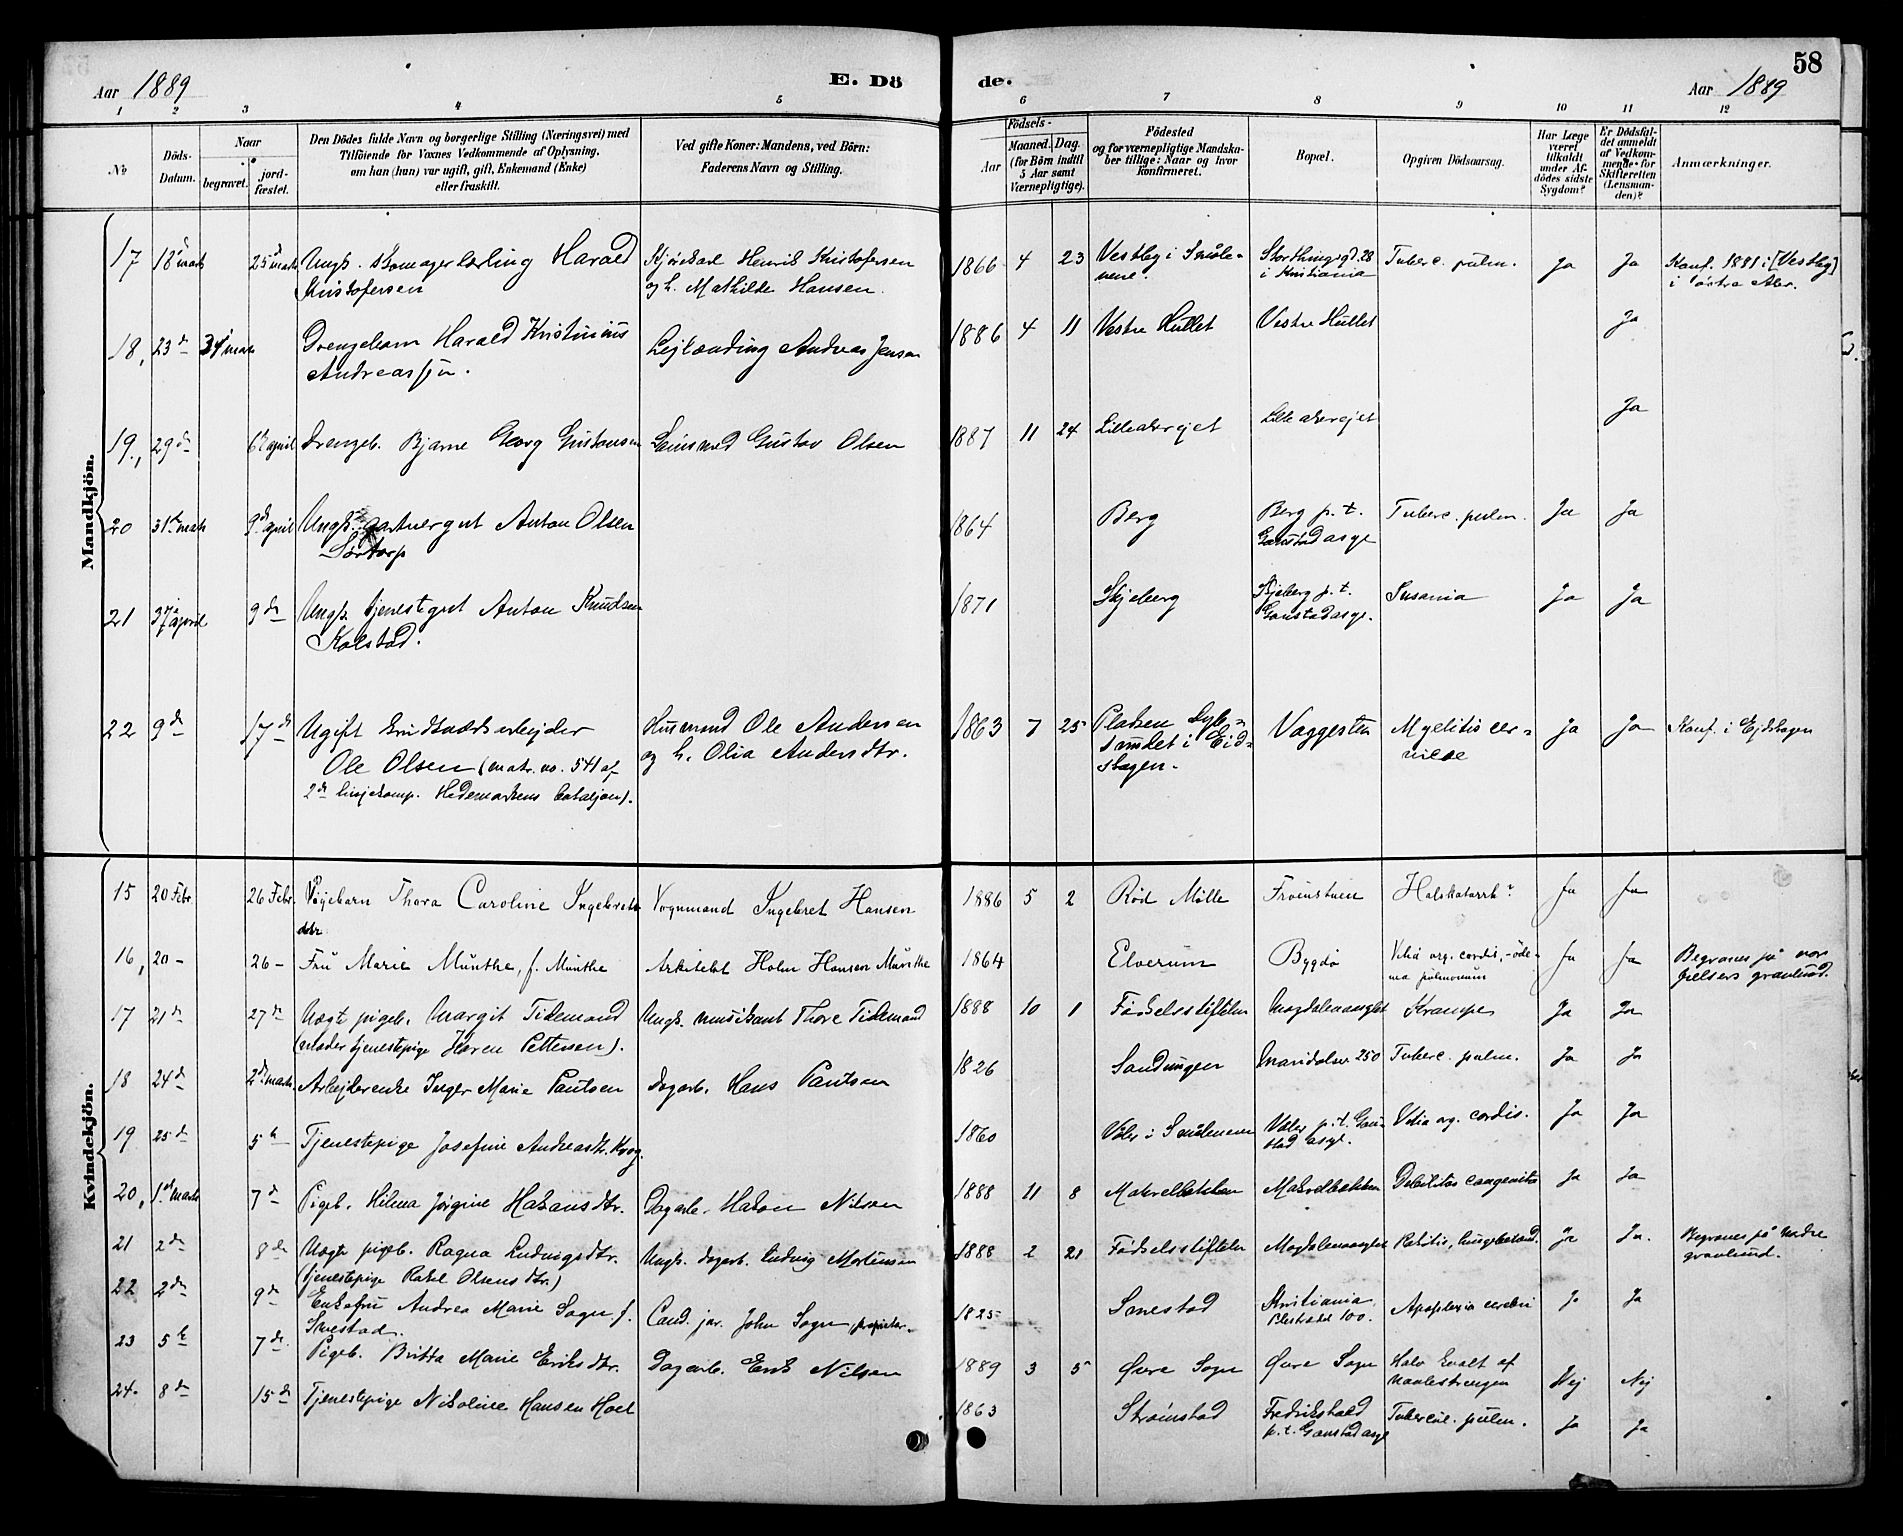 58
Aar 1889
E. Dö
de.
Aar 1889
1 2 3 4 5 6 7 8 9 10 11 12
№
Döds-
Datum.
Naar
begravet.
jord-
fæstet.
Den Dödes fulde Navn og borgerlige Stilling (Næringsvei) med
Tilföiende for Voxnes Vedkommende af Oplysning,
om han (hun) var ugift, gift, Enkemand (Enke)
eller fraskilt.
Ved gifte Koner: Mandens, ved Börn:
Faderens Navn og Stilling.
Födsels-
Aar
Maaned.
Dag.
(for Børn indtil
5 Aar samt
Værnepligtige).
Födested
og for værnepligtige Mandska-
ber tillige: Naar og hvor
konfirmeret.
Bopæl.
Opgiven Dödsaarsag.
Har Læge
været
tilkaldt
under Af-
dödes sidste
Sygdom?
Er Dödsfal-
det anmeldt
af Vedkom-
mende for
Skifteretten
(Lensman-
den)?
Anmærkninger.
Mandkjön.
17 18 marts 25 marts Ungk. skomagerlærling Harald
Kristofersen
Henrik Kristofersen
og h. Mathilde Hansen.
1866 4 23 Vestby i Småle-
nene.
Storthingsgd. 28
i Kristiania
Tuberc. pulm. Ja Ja Konf. 1881 i [Vestby]
i östre Aker.
18, 23de 31 marts Drengebarn Harald Kristinius
Andreassøn.
Lejlænding Andreas Jensen
1886 4 11 Vestre Hullet Vestre Hullet Ja
19., 29de 6te april Drengeb. Bjarne Georg Gustavsen Gustav Olsen
1887 11 24 Lilleakerejet Lilleakerejet Ja
20 31te marts 9de april Ungk. gartnergut Anton Olsen
Sørtorp
1864 Berg Berg p. t.
Gaustad asyl Tuberc. pulm. Ja Ja
21 april 9de Ungk. tjenestegut Anton Knudsen
Kolstad.
1871 Skjeberg Skjeberg p. t.
Gaustad asyl. Insania Ja Ja
22 9de 17de Ugift arbejder
Ole Olsen (matr. no. 541 af
2de linjekomp. Hedemarkens bataljon).
Husmand Ole Andersen
og h. Olia Andersdtr.
1863 7 25 Pladsen
i Eid-
skogen.
Vaggesten Myelitis cer-
vicae Ja Ja Konf. i Ejdskogen
Kvindekjön.
15 20 Febr. 26 Febr. Pigebarn Thora Caroline Ingebrets
dtr
Vognmand Ingebret Hansen
1886 5 2 Rød Mølle Frøenstuen Halskatarrh? Ja Ja
16, 20 - 26 - Fru Marie Munthe, f. Munthe Arkitekt Holm Hansen Munthe
1864 Elverum Bygdø Vitia org. cordis, - øde-
ma pulmonum Ja Ja Begraves på vor
frelsers gravlund.
17 21de 27de Uægte pigeb. Margit Tidemand
(moder tjenestepige Karen Pettersen).
Ungk. musikant Thore Tidemand
1888 10 1 Fødselsstiftelsen Magdalenaasylet Krampe Ja Ja
18 24de 2de marts Arbejderenke Inger Marie Paulsen Dagarb. Hans Paulsen
1826 Sandungen Maridalsv 250 Tuberc. pulm. Ja Ja
19 25de 5te Tjenestepige Josefine Andreasdtr. Krog.
1860 Våler i Smålenene Våler p. t. Gau-
stad asyl. Vitia org. cordis. Ja Ja
20, 1ste marts 7de Pigeb. Helena Jørgine Hakansdtr. Dagarb. Hakon Nilsen
1888 11 8 Makrelbækken Makrelbækken Debilitas congenita Ja Ja
21 2de 8de Uægte pigeb. Ragna Ludvigsdtr.
(tjenestepige Rakel Olsensdtr.)
Ungk. dagarb. Ludvig Mortensen
1888 2 21 Fødselsstiftelsen Magdalenaasylet Rakitis, Ja Ja. Begraves på Nordre
gravlund.
22 2de 9de Enkefru Andrea Marie Sogn f.
Smestad.
Cand. jur. John Sogn proprietær.
1825 Smestad Kristiania.
Pilestrædet 100. Apoplexia cerebri Ja Ja
23 5te 7de Pigeb. Britta Marie Eriksdtr. Dagarb. Erik Nilsen
1889 3 5 Øvre Sogn Øvre Sogn Kvalt af
Navlestrengen Nej Nej
24. 8de 15de Tjenestepige Nikoline Hansen Hoel
1863 Strømstad Fredrikshald
p. t. Gaustad asyl Tubercul. pulm. Ja Ja